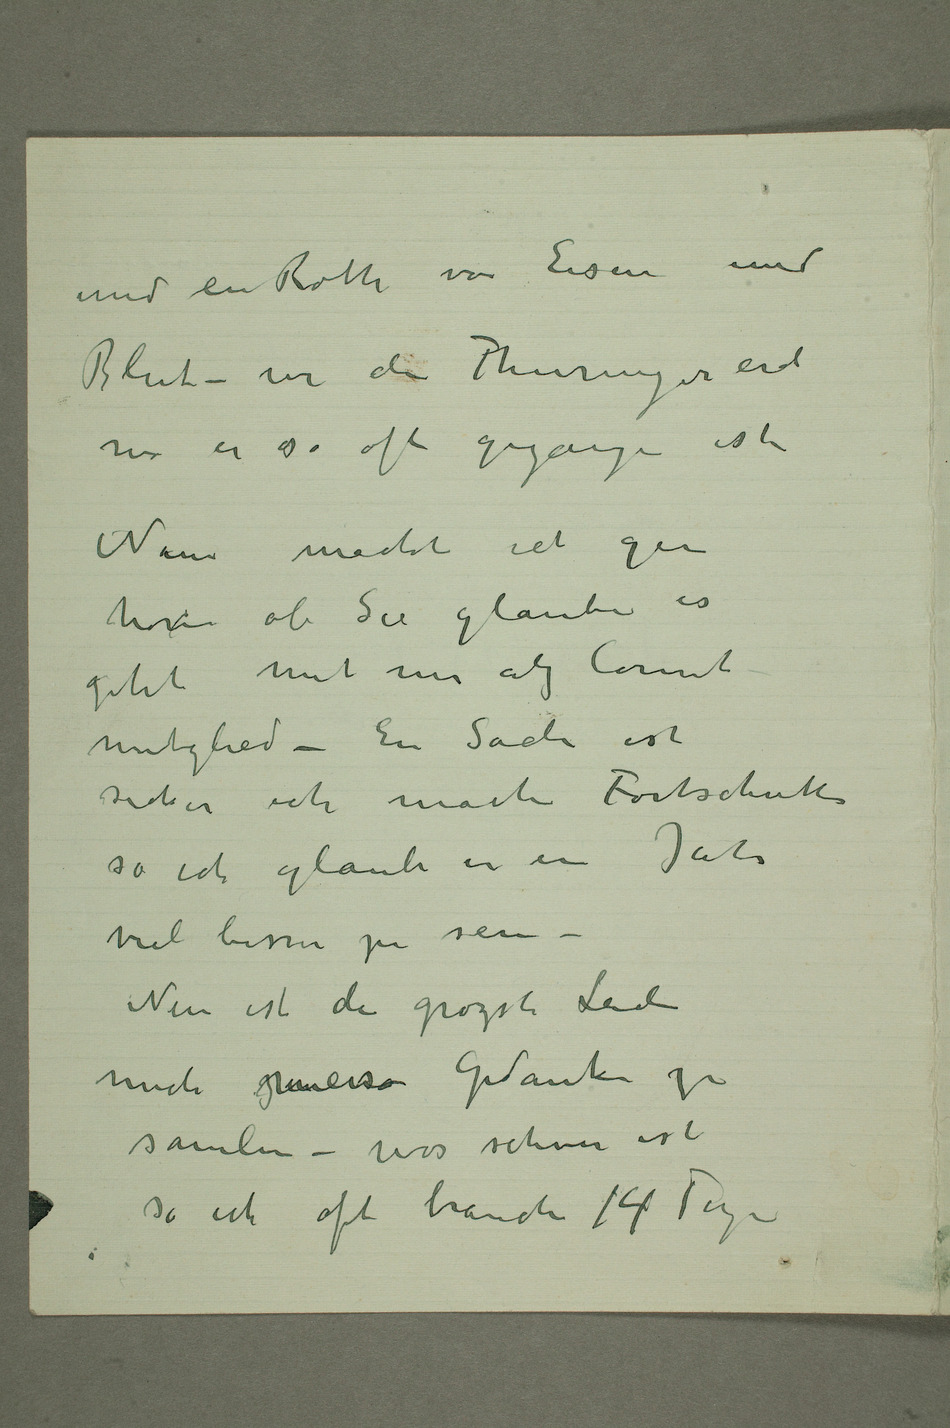 und ein Rothe von Eisen und
Blut – wie die Thuringer erd
wo er so oft gegangen ist
Nun möcht ich gern
horen ob Sie glauben es
geht mit mir als Comit
mitglied – Ein Sache ist
sicher ich mache Fortschritte
so ich glaube in ein Jahr
viel besser zu sein –
Nun ist die grozste Leiden
mich Gedanken zu
samlen – was schwer ist
so ich oft brauche 14 Tage